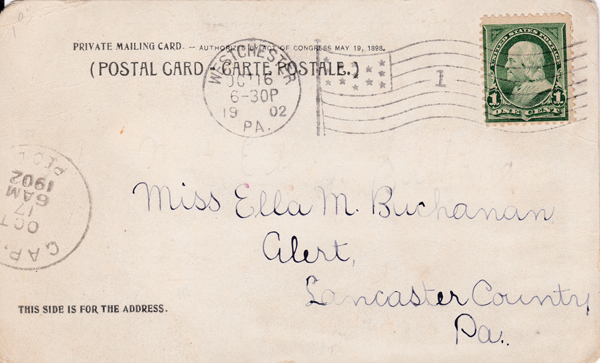 PRIVATE MAILING CARD. — AUTHORIZED BY ACT OF CONGRESS MAY 19, 1898.
(POSTAL CARD — CARTE POSTALE.)
WESTCHESTER
OC 16
6-30P
19 02
PA.
1
UNITED STATES POSTAGE
1 1
ONE CENT
GAP,
OCT
17
6AM
1902
REC'D
Miss Ella M. Buchanan
Alert,
Lancaster County,
Pa.
THIS SIDE IS FOR THE ADDRESS.